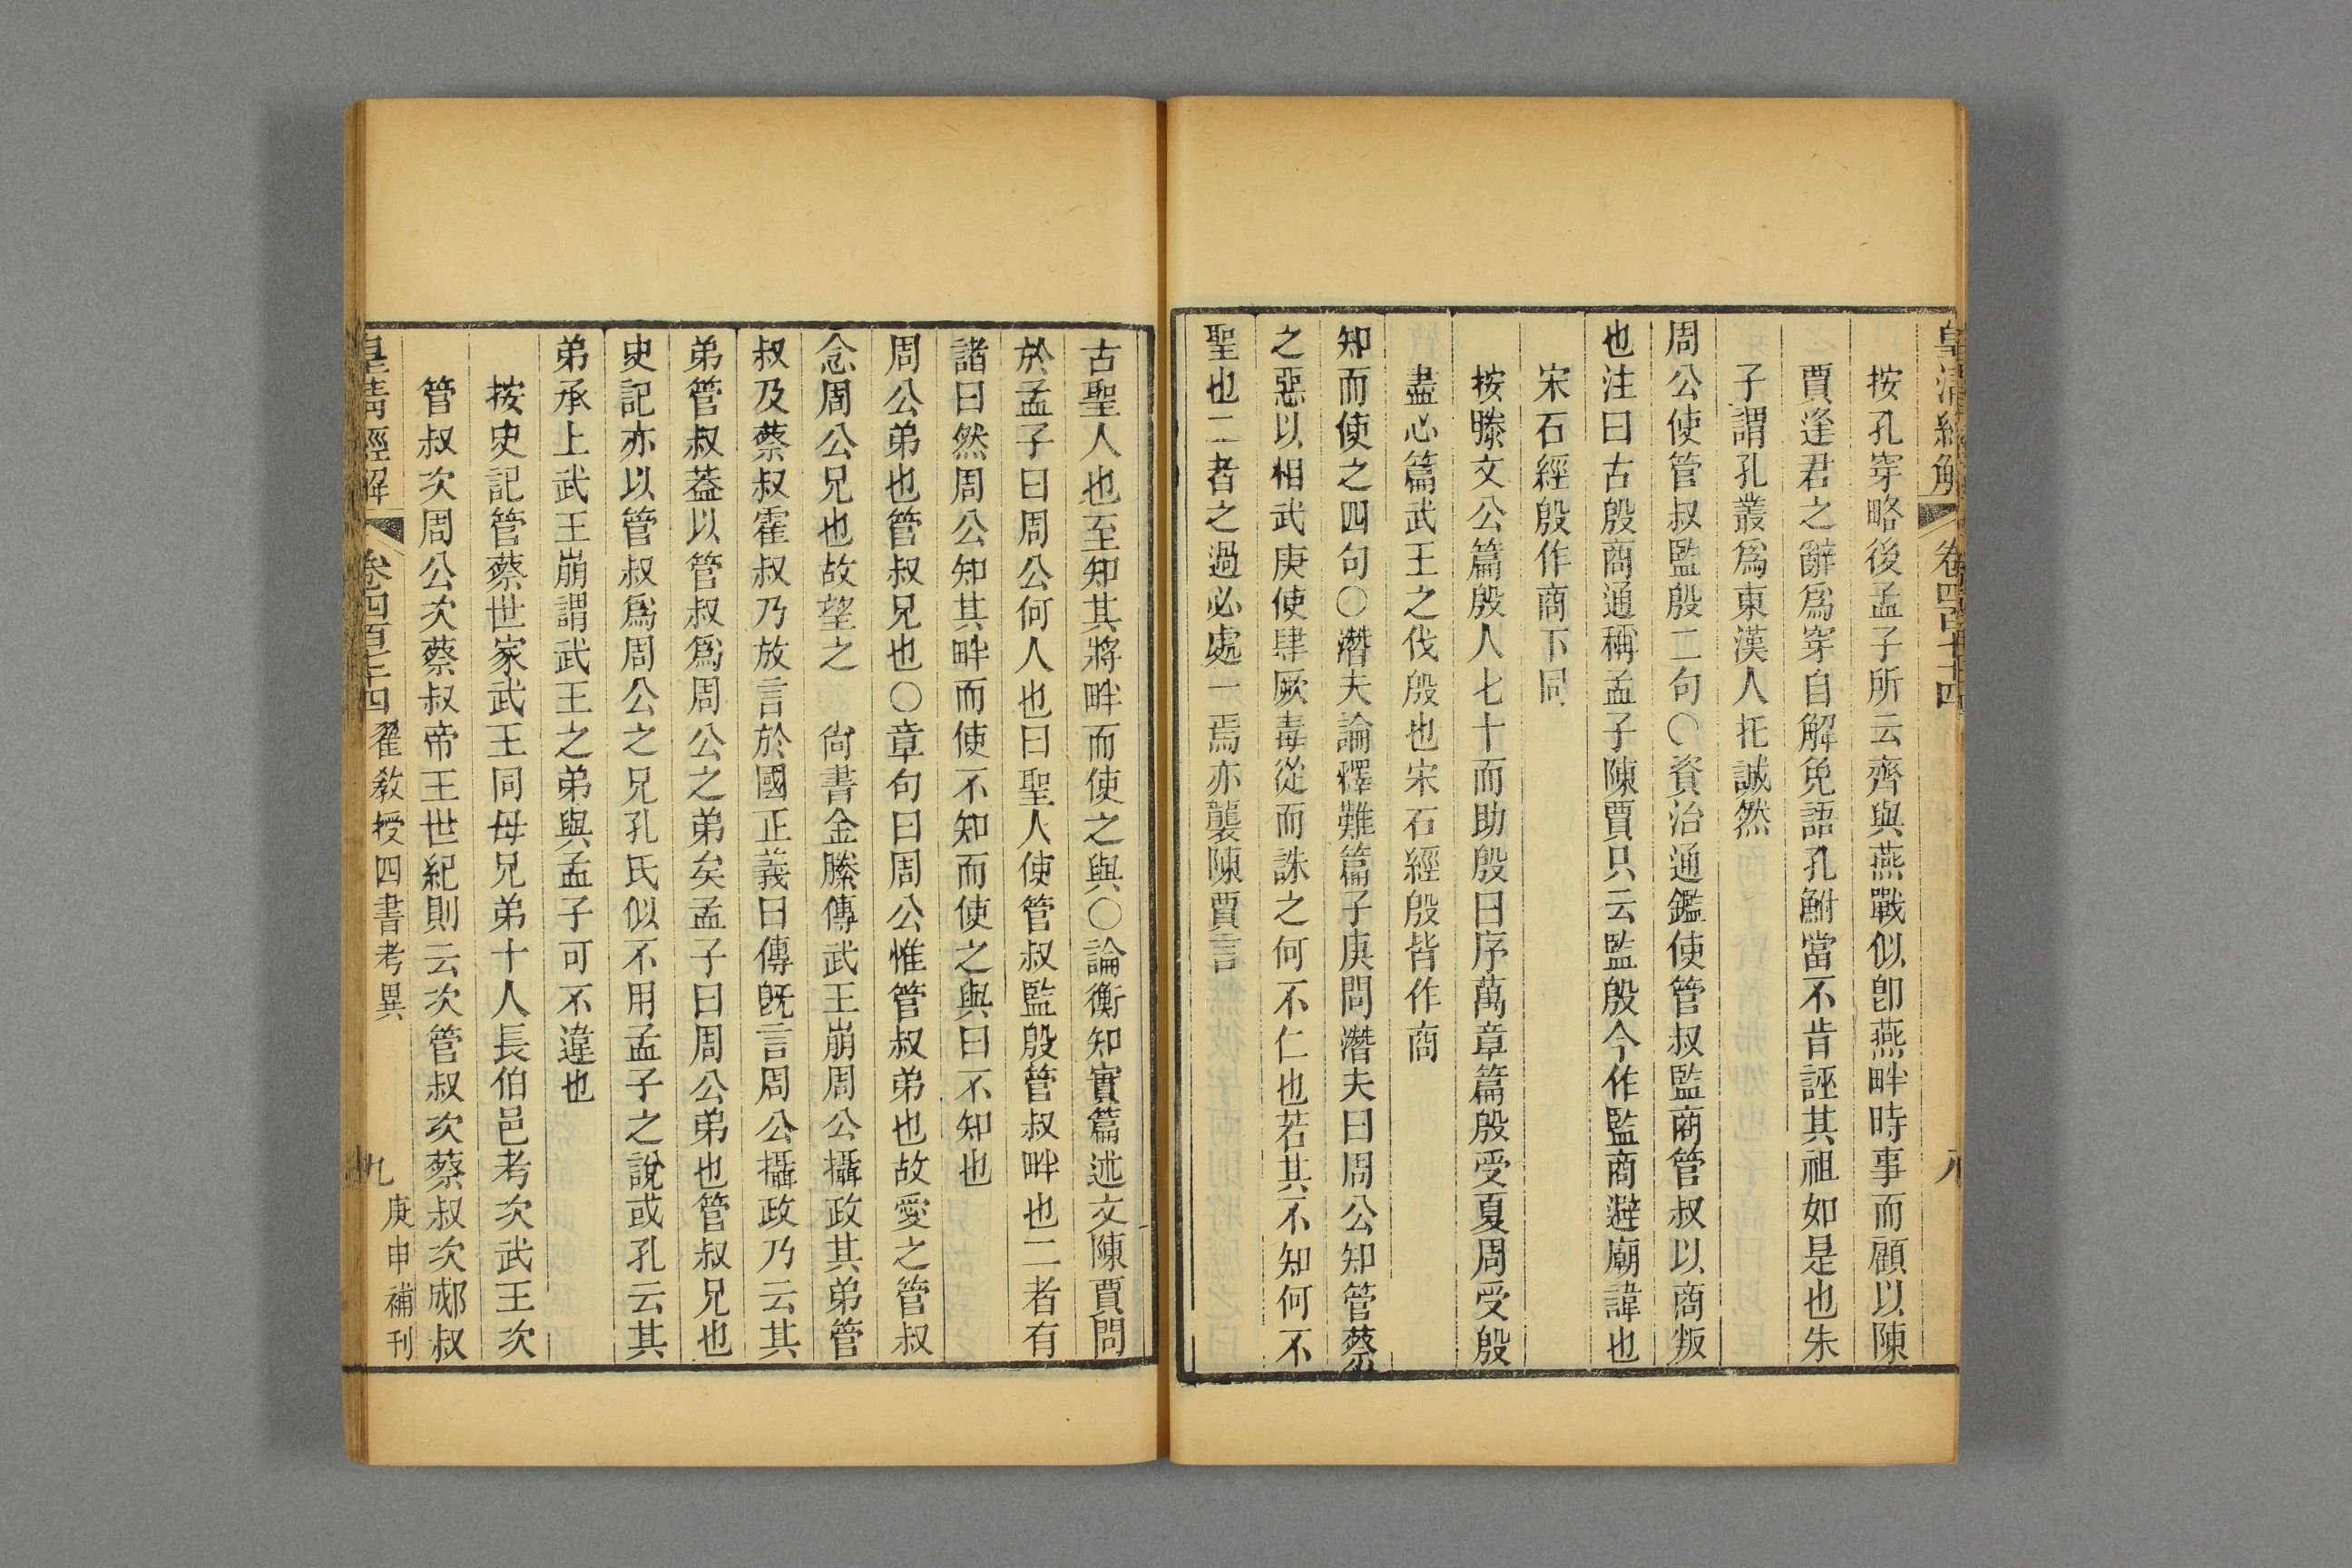 皇清經解 卷四百七十四 八
按孔穿略後孟子所云齊與燕戰似卽燕畔時事而顧以陳
賈逢君之辭爲穿自解免語孔鮒當不肯誣其祖如是也朱
子謂孔叢爲東漢人托誠然
周公使管叔監殷二句○資治通鑑使管叔監商管叔以商叛
也注曰古殷商通稱孟子陳賈只云監殷今作監商避廟諱也
宋石經殷作商下同
按滕文公篇殷人七十而助殷曰序萬章篇殷受夏周受殷
盡心篇武王之伐殷也宋石經殷皆作商
知而使之四句○潛夫論釋難篇子庚問潛夫曰周公知管蔡
之惡以相武庚使肆厥毒從而誅之何不仁也若其不知何不
聖也二者之過必處一焉亦襲陳賈言
古聖人也至知其將畔而使之與○論衡知實篇述文陳賈問
於孟子曰周公何人也曰聖人使管叔監殷管叔畔也二者有
諸曰然周公知其畔而使不知而使之與曰不知也
周公弟也管叔兄也○章句曰周公惟管叔弟也故愛之管叔
念周公兄也故望之 尙書金縢傳武王崩周公攝政其弟管
叔及蔡叔霍叔乃放言於國正義曰傳旣言周公攝政乃云其
弟管叔蓋以管叔爲周公之弟矣孟子曰周公弟也管叔兄也
史記亦以管叔爲周公之兄孔氏似不用孟子之說或孔云其
弟承上武王崩謂武王之弟與孟子可不違也
按史記管蔡世家武王同母兄弟十人長伯邑考次武王次
管叔次周公次蔡叔帝王世紀則云次管叔次蔡叔次郕叔
皇清經解 卷四百七十四 翟教授四書考異 九 庚申補刊